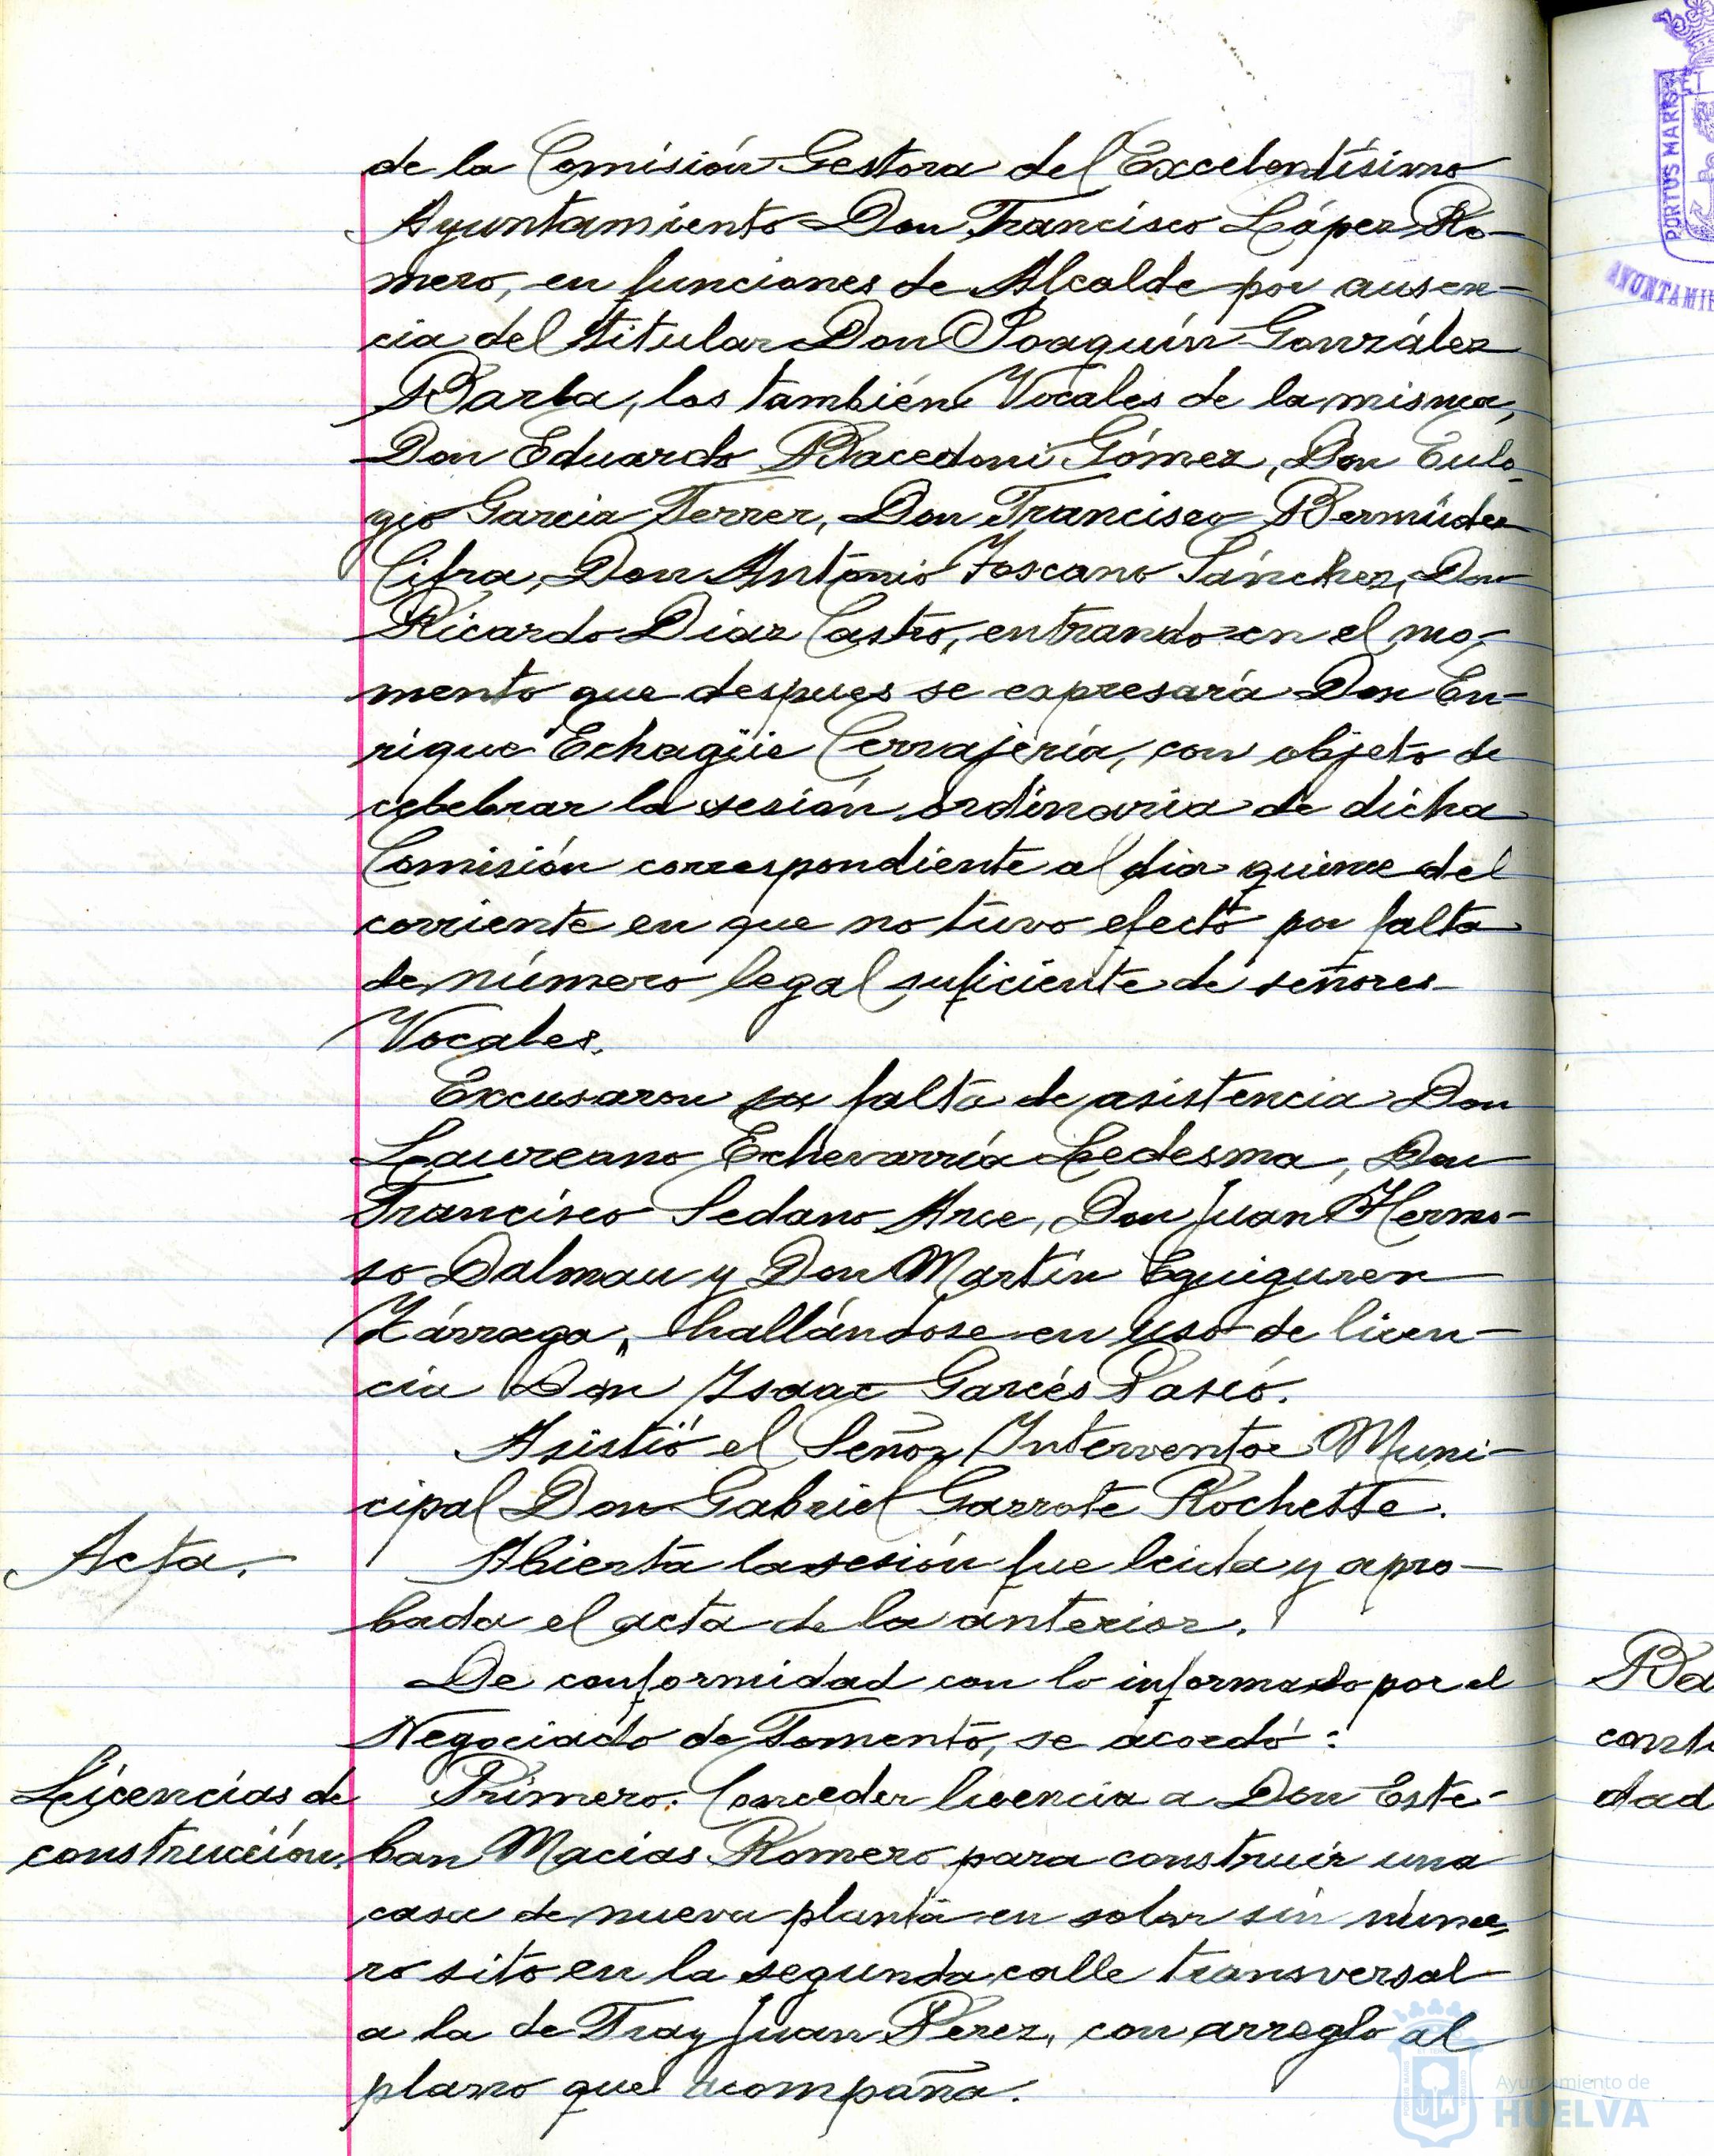 de la Comisión Gestora del Excelentísimo
Ayuntamiento Don Francisco López Ro-
mero, en funciones de Alcalde por ausen-
cia del titular Don Joaquín González
Barba, los también Vocales de la misma,
Don Eduardo Bacedoni Gómez, Don Eulo-
gio Garcia Ferrer, Don Francisco Bermúdez
Cifra, Don Antonio Toscano Sánchez, Don
Ricardo Diaz Castro, entrando en el mo-
mento que despues se expresará Don En-
rique Echagüe Cerrajería, con objeto de
celebrar la sesión ordinaria de dicha
Comisión correspondiente al dia quince del
corriente en que no tuvo efecto por falta
de número legal suficiente de señores
Vocales.
Excusaron su falta de asistencia Don
Laureano Echevarría Ledesma, Don
Francisco Sedano Arce, Don Juan Hermo-
so Dalmau y Don Martín Eguiguren
Zárraga, hallándose en uso de licen-
cia Don Isaac Garcés Paseó.
Asistió el Señor Interventor Muni-
cipal Don Gabriel Garrote Rochette.
Acta.
Abierta la sesión fue leida y apro-
bada el acta de la anterior.
De conformidad con lo informado por el
Negociado de Fomento, se acordó:
Licencias de
construcción.
Primero. Conceder licencia a Don Este-
ban Macias Romero para construir una
casa de nueva planta en solar sin núme-
ro sito en la segunda calle transversal
a la de Fray Juan Pérez, con arreglo al
plano que acompaña.
PORTUS MARIS ET
AYUNTAMIE
Ba
conti
dad
Ayuntamiento de
HUELVA